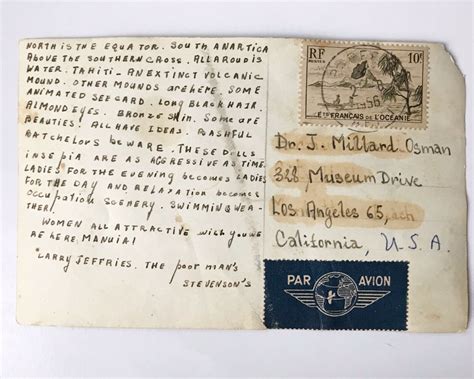 NORTH IS THE EQUATOR. SOUTH ANARTICA
ABOVE THE SOUTHERN CROSS. ALLAROUD is
WATER. TAHITI - AN EXTINCT VOLCANIC
MOUND. OTHER MOUNDS ARE HERE. SOME
ANIMATED SEE CARD. LONG BLACK HAIR.
ALMOND EYES. BRONZE SKIN. SOME ARE
BEAUTIES. ALL HAVE IDEAS. BASHFUL
BATCHELORS BEWARE. THESE DOLLS
IN SEPIA ARE AS AGGRESSIVE AS TIME.
LADIES FOR THE EVENING BECOMES LADIES
FOR THE DAY AND RELAXATION BECOMES
OCCUPATION SCENERY. SWIMMING WEA-
THER
WOMEN ALL ATTRACTIVE WISH YOU WE
RE HERE. MANUIA!
"LARRY JEFFRIES. THE POOR MAN'S
STEVENSON'S
RF
POSTES
10F
56
ETS FRANÇAIS DE L'OCÉANIE
Dr. J. Millard Osman
328 Museum Drive
Los Angeles 65,
California, U.S.A.
PAR AVION